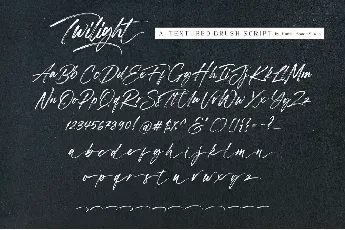 Twilight
A TEXTURED BRUSH SCRIPT by
Aa Bb Cc Dd Ee Ff Gg Hh Ii Jj Kk Ll Mm
Nn Oo Pp Qq Rr Ss Tt Uu Vv Ww Xx Yy Zz
1234567890! @#$%^&*()
a b c d e f g h i j k l m
o p q r s t u v w x y z